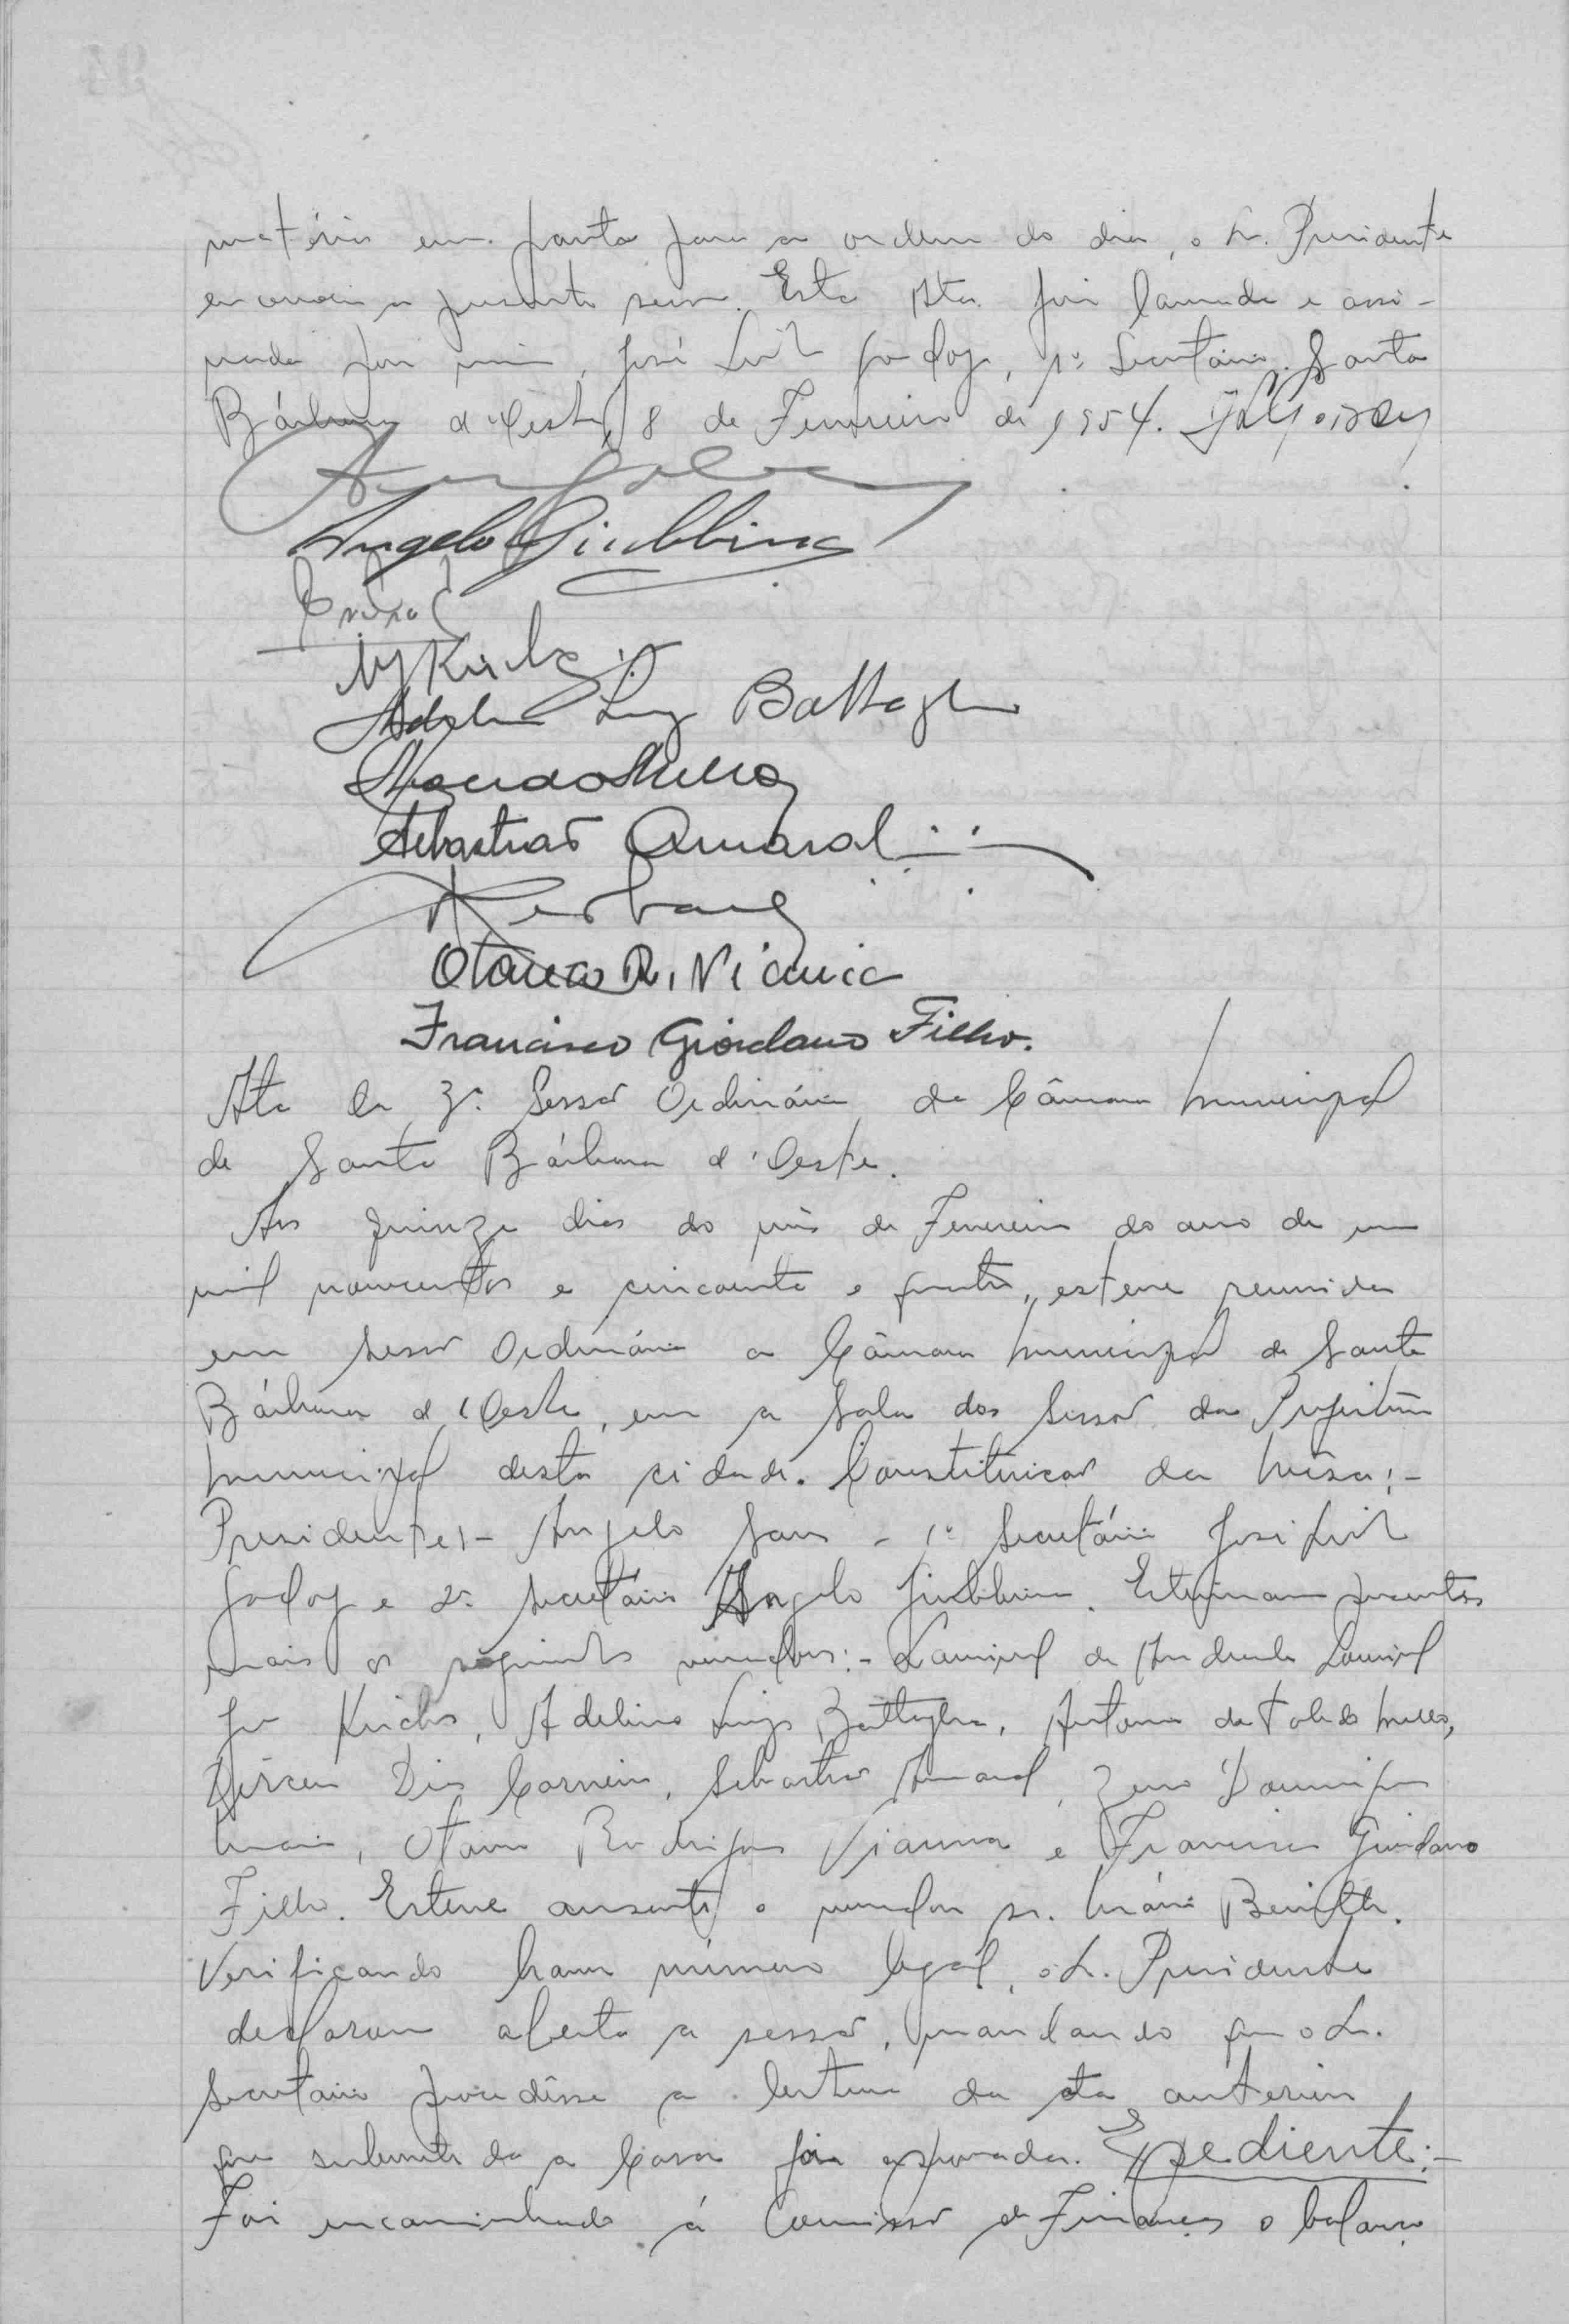 matéria em pauta para a ordem do dia, o Sr. Presidente
encerrou a presente sessão. Esta Ata foi lavrada e assi-
nada por mim, José Luiz Godoy, 1º Secretário. Santa
Bárbara d'Oeste, 8 de Fevereiro de 1954. JLGodoy
Angelo Giubbina
Adelino Luiz Battaglia
Sebastião Amaral
Otavio R. Vianna
Francisco Giordano Filho.
Ata da 3ª. Sessão Ordinária da Câmara Municipal
de Santa Bárbara d'Oeste.
Aos quinze dias do mês de Fevereiro do ano de um
mil novecentos e cincoenta e quatro, esteve reunida
em sessão Ordinária a Câmara Municipal de Santa
Bárbara d'Oeste, em a Sala das Sessões da Prefeitura
Municipal desta cidade. Constituição da Mesa:-
Presidente:- Angelo Sans - 1º Secretário José Luiz
Godoy e 2º Secretário Angelo Giubbina. Estiveram presentes
mais os seguintes vereadores:- de Andrade
Adelino Luiz Battaglia, Antonio de Toledo Mello,
Dirceu Dias Carneiro, Sebastião Amaral, Zeno Domingues
Maia, Otavio Rodrigues Vianna e Francisco Giordano
Filho. Esteve ausente o vereador sr. Mário
Verificando haver número legal, o Sr. Presidente
declarou aberta a sessão, mandando que o Sr.
Secretário procedesse a leitura da ata anterior
que submetida a Casa foi aprovada. Expediente:-
Foi encaminhado á Comissão de Finanças o balanço